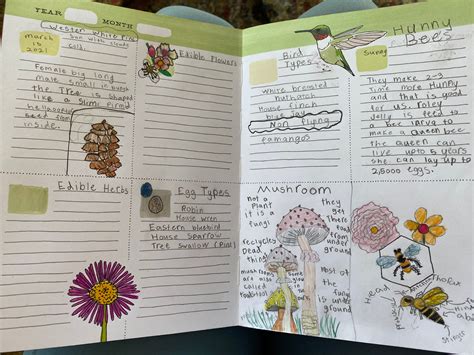 YEAR
MONTH
march
15
2021
Wester White Pine
Sun with clouds
cold
Female big long
male small in bunch
the Tree is shaped
like a
seed
inside.
Edible Flowers
Bird
Types
white brested
nuthatch
House finch
blue jay
Non flying
eamangos
Hunny
Bees
Sunny
They make 2-3
Time more Hunny
and that is good
for us. roley
Jelly is feed to
a bee larva to
make a queen bee
the queen can
live upto 5 years
she can lay up to
2,8000 eggs.
Edible Herbs
Egg Types
Robin
House wren
Eastern bluebird
House Sparrow
Tree swallow
Mushroom
not a
plant
it is a
fungi
recycles
dead
things
mushrooms
are also
called
toadstool
they
get
there
food
from
under
ground
most of
the
fungi
is under
ground
Head
Thorax
Stinger